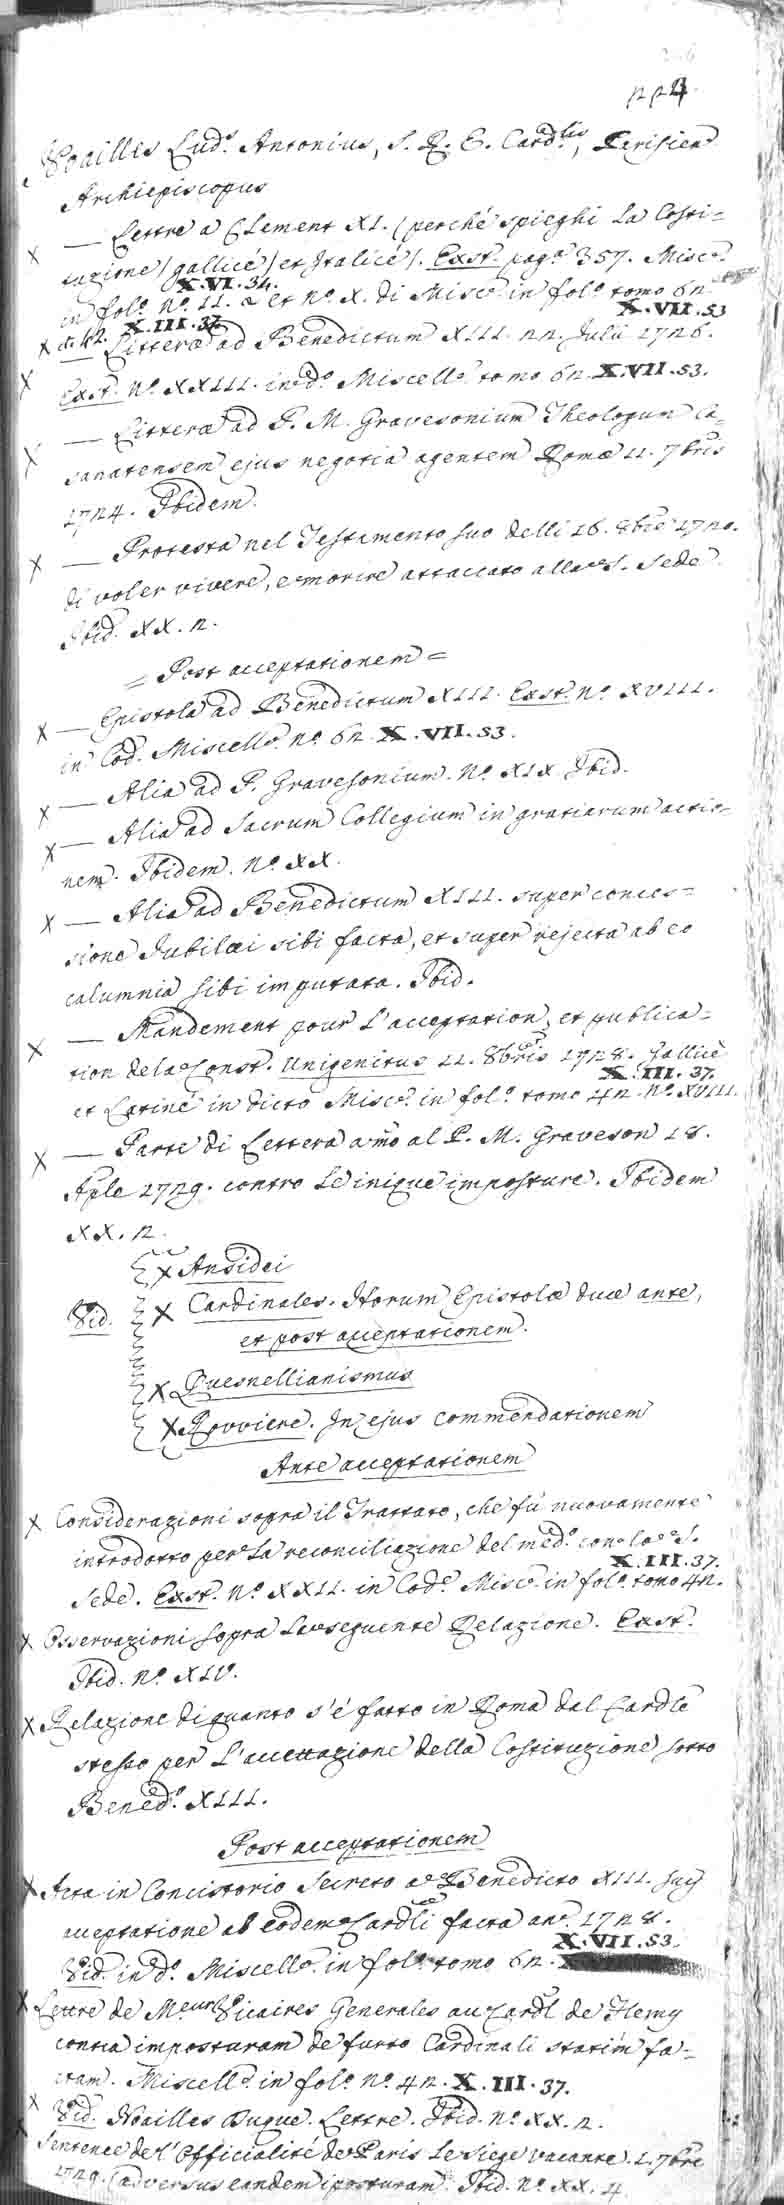 224
Noailles Lud.s Antonius, S. R. E. Card.lis, Parisien
Archiepiscopus
X — Lettre a Clement XI. (perché spieghi la Costi=
tuzione) gallicé) et Italicé). Exst. pag.e 357. Misc.
X.VI.34.
in fol.o n.o 11. & et n.o X. di Misc. in fol.o tomo 62.
X.VII.53
X et 42. X.III.37.
— Litteræ ad Benedictum XIII. 22. Julii 1726.
X Exst. N.o XXIII. in d.o Miscell.o tomo 62. X.VII.53.
X — Litteræ ad P. M. Gravesonium Theologum Ca=
sanatensem ejus negotia agentem Romæ 11. 7bris
1724. Ibidem.
X — Protesta nel Testamento suo delli 16. 8bre 1720.
di voler vivere, e morire attaccato alla S. Sede
Ibid. XX. 2.
= Post acceptationem =
X — Epistola ad Benedictum XIII. Exst. n.o XVIII.
in Cod. Miscell.o n.o 62. X.VII.53.
X — Alia ad P. Gravesonium. N.o XIX. Ibid.
X — Alia ad Sacrum Collegium in gratiarum actio=
nem. Ibidem. N.o XX.
X — Alia ad Benedictum XIII. super conces=
sione Jubilæi sibi facta, et super rejecta ab eo
calumnia sibi imputata. Ibid.
X — Mandement pour l'acceptation, et publica=
tion de la Const. Unigenitus 11. 8bris 1728. Gallicé
X.III.37.
et Latiné in dicto Misc. in fol.o tomo 42. N.o XVIII.
X — Parte di Lettera a mo al P. M. Graveson 18.
Aple 1729. contro le inique imposture. Ibidem
XX. 2.
X Ansidei
Vid. X Cardinales. Horum Epistolæ duæ ante,
et post acceptationem.
X Quesnellianismus
X Rovviere. In ejus commendationem
Ante acceptationem
X Considerazioni sopra il Trattato, che fù nuovamente
introdotto per la reconciliazione del med.o con la S.
X.III.37.
Sede. Exst. N.o XXII. in Cod. Misc. in fol.o tomo 42.
X Osservazioni sopra la seguente Relazione. Exst.
Ibid. n.o XIV.
X Relazione di quanto s'é fatto in Roma dal Cardle
stesso per l'accettazione della Costituzione sotto
Bened.o XIII.
Post acceptationem
X Acta in Concistorio Secreto a Benedicto XIII. sup
acceptatione ab eodem Cardli facta an. 1728.
X.VII.53.
Vid. in d.o Miscell.o in fol.o tomo 62.
X Lettre de M.eurs Vicaires Generales au Cardl de Fleury
contra imposturam de furto Cardinali statim fa=
ctam. Miscell.o in fol.o n.o 42. X.III.37.
X Vid. Noailles Duque. Lettre. Ibid. n.o XX. 2.
X Sentence de l'Officialité de Paris le Siege vacante. 1. 7bre
1729. (adversus eandem iposturam. Ibid. n.o XX. 4